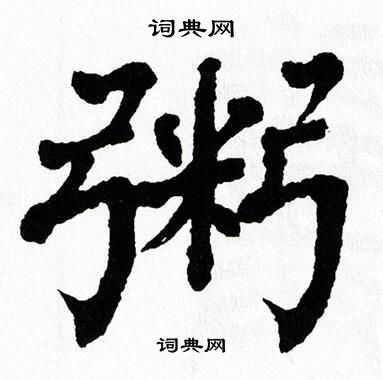 词典网
粥
词典网